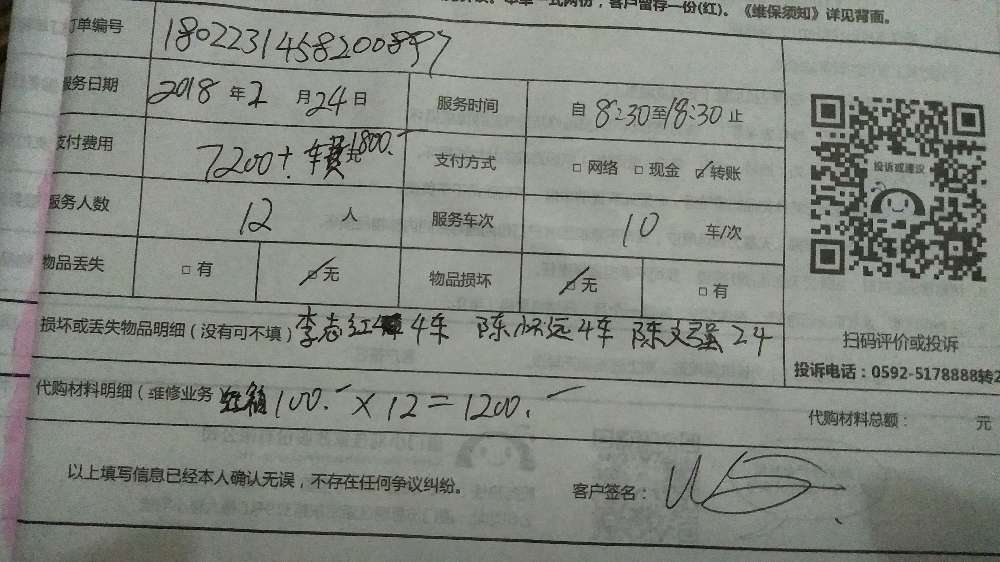 本单一式两份，客户留存一份(红)。《维保须知》详见背面。
订单编号 1802231458200897
服务日期 2018 年 2 月 24 日 服务时间 自 8:30 至 18:30 止
支付费用 7200+车费1800.- 支付方式 □ 网络 □ 现金 ☑ 转账
服务人数 12 人 服务车次 10 车/次
物品丢失 □ 有 ☑ 无 物品损坏 ☑ 无 □ 有
损坏或丢失物品明细（没有可不填）李志红 4车 陈怀远4车 陈文强 2车
代购材料明细（维修业务 100.- × 12 = 1200.- 代购材料总额： 元
以上填写信息已经本人确认无误，不存在任何争议纠纷。 客户签名：
投诉或建议
扫码评价或投诉
投诉电话：0592-5178888转2